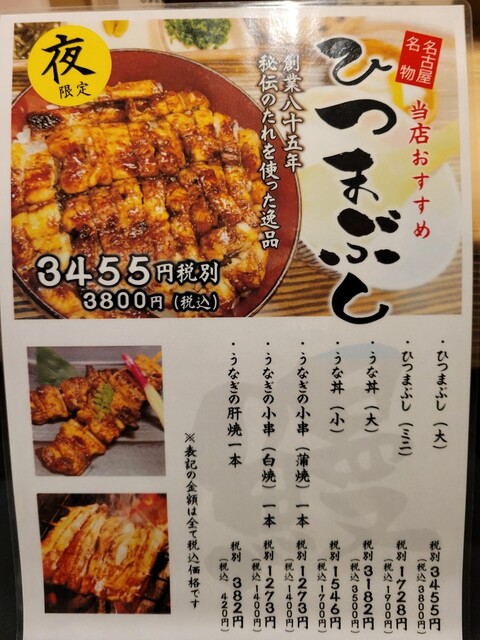 夜
限定
名古屋
名物
当店おすすめ
ひつまぶし
創業八十五年
秘伝のたれを使った逸品
3455円税別
3800円(税込)
・ひつまぶし(大) 税別 3455円 (税込 3800円)
・ひつまぶし(ミニ) 税別 1728円 (税込 1900円)
・うな丼(大) 税別 3182円 (税込 3500円)
・うな丼(小) 税別 1546円 (税込 1700円)
・うなぎの小串(蒲焼)一本 税別 1273円 (税込 1400円)
・うなぎの小串(白焼)一本 税別 1273円 (税込 1400円)
・うなぎの肝焼一本 税別 382円 (税込 420円)
※表記の金額は全て税込価格です